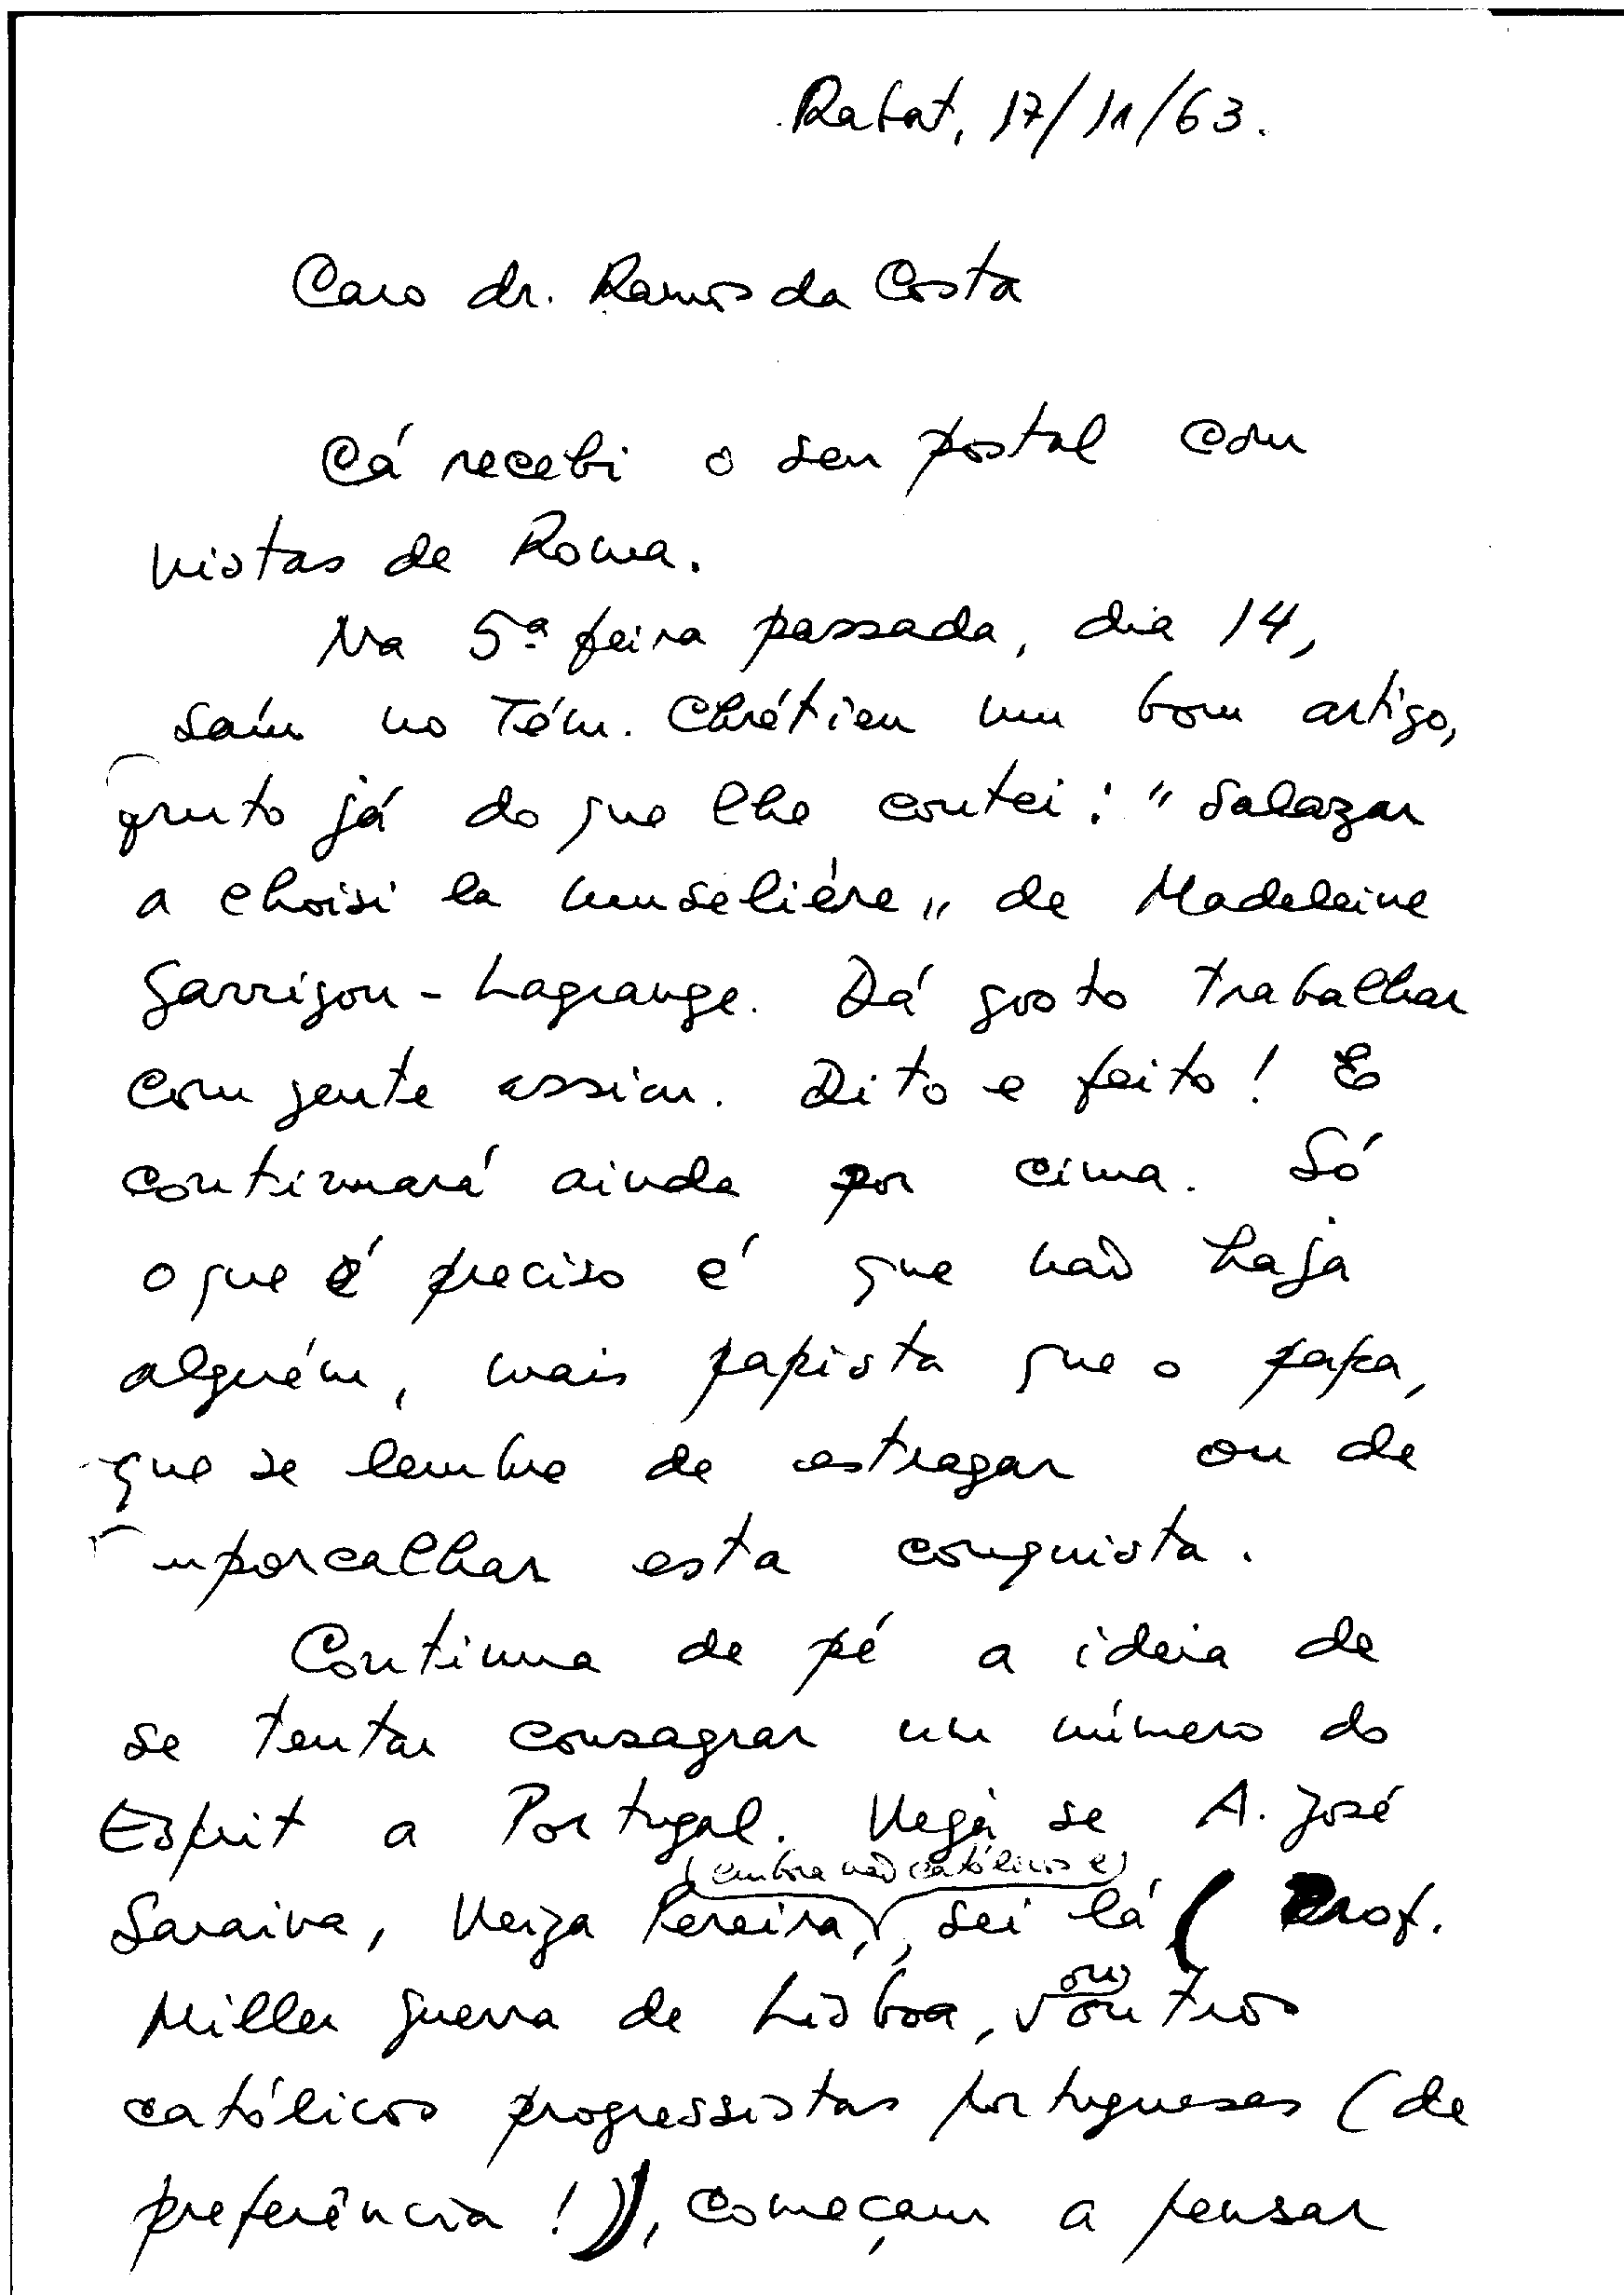 Rabat, 17/11/63.
Caro dr. Ramos da Costa
Cá recebi o seu postal com
vistas de Roma.
Na 5ª feira passada, dia 14,
saíu no Tém. Chrétien um bom artigo,
fruto já do que lhe contei: "Salazar
a choisi la muselière" de Madeleine
Garrigou-Lagrange. Dá gosto trabalhar
com gente assim. Dito e feito! E
continuará ainda por cima. Só
o que é preciso é que não haja
alguém, mais papista que o papa,
que se lembre de estragar ou de
emporcalhar esta conquista.
Continua de pé a ideia de
se tentar consagrar um número do
Esprit a Portugal. Veja se A. José
(embora não católicos e)
Saraiva, Veiga Pereira, sei lá (Prof.
ou
Miller Guerra de Lisboa, outros
católicos progressistas portugueses (de
preferência!)), começam a pensar